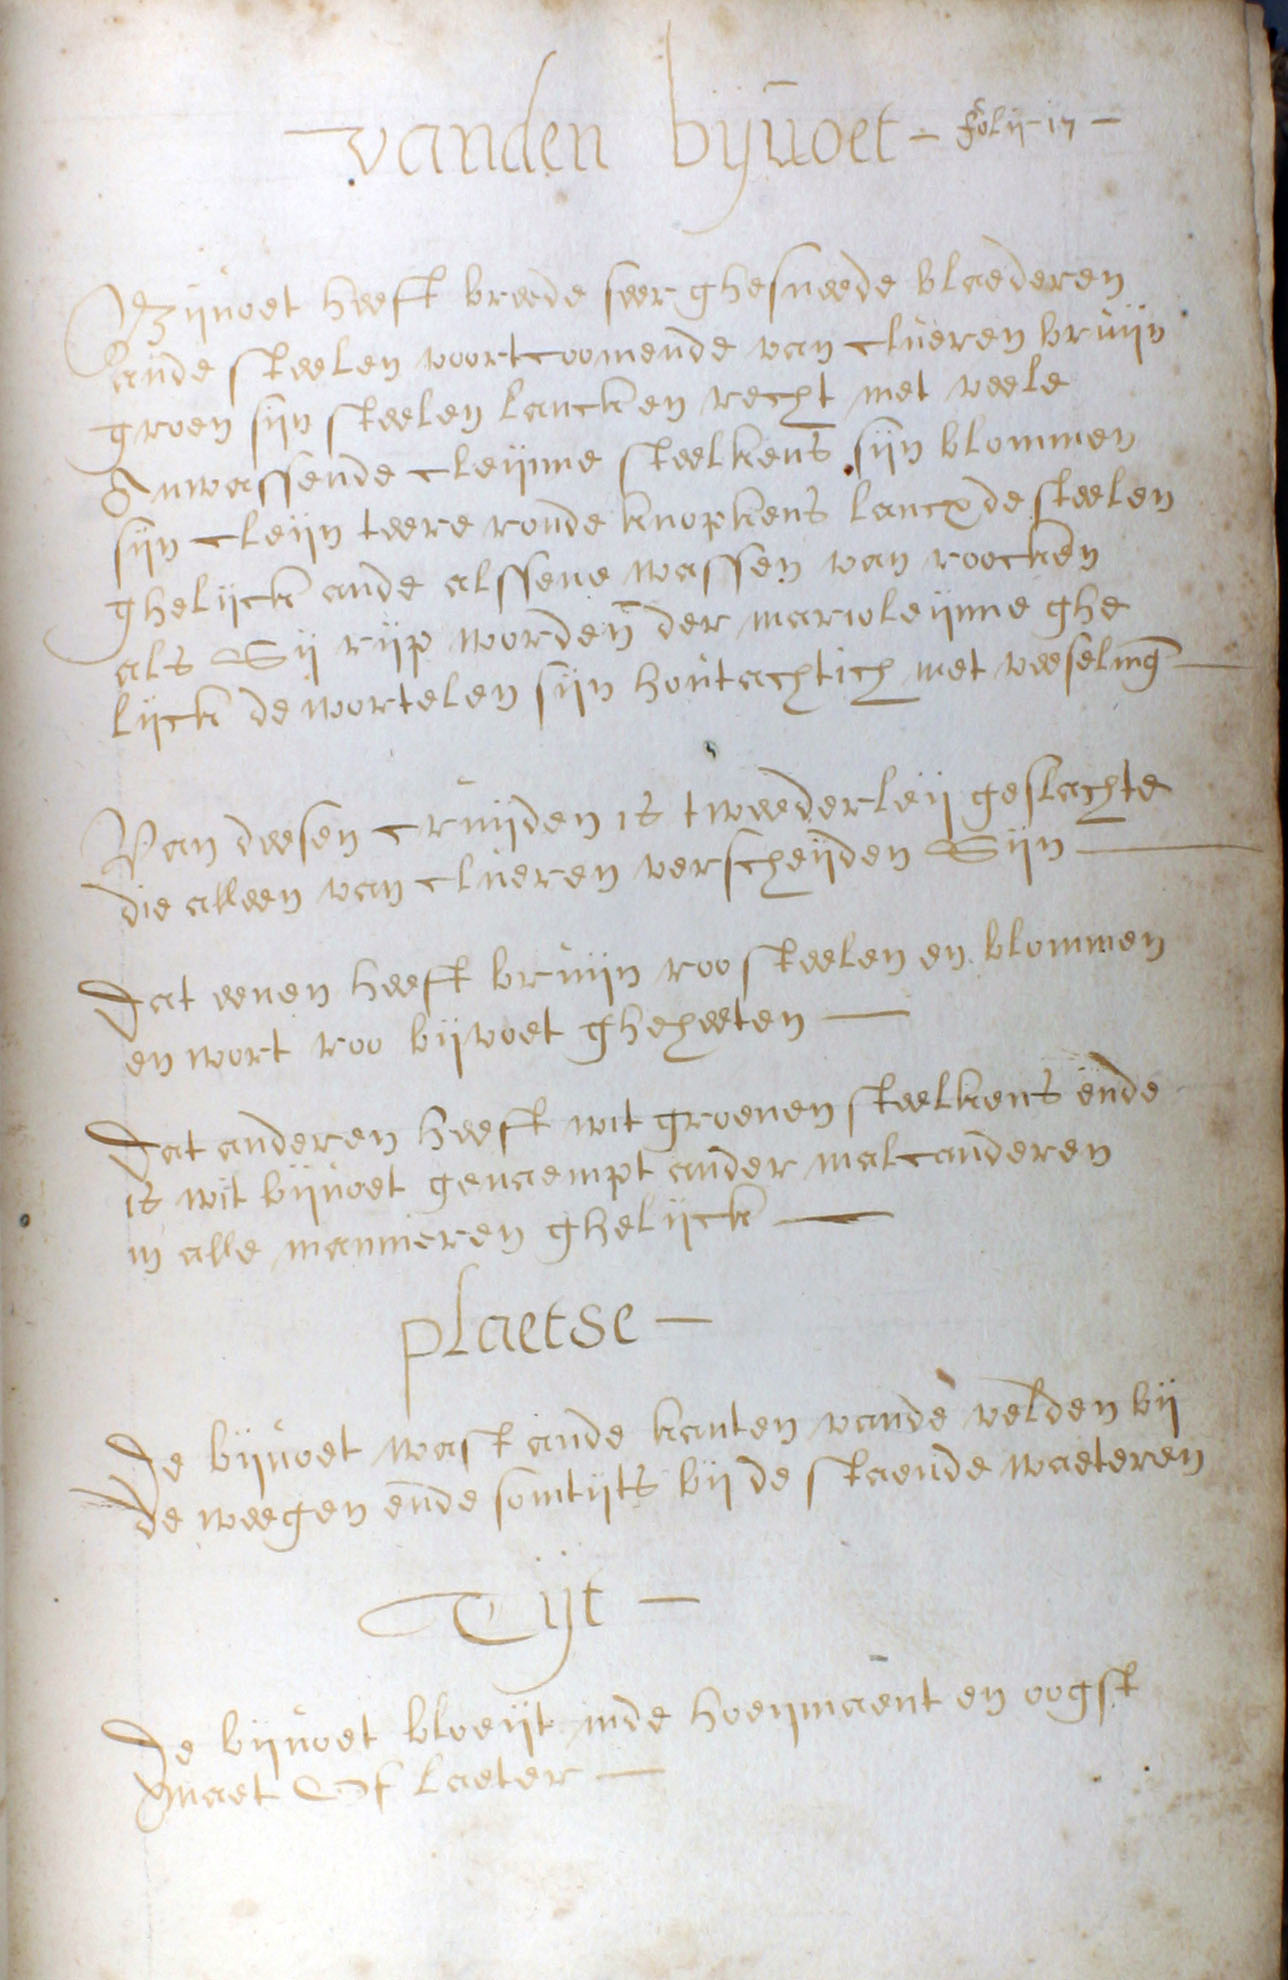 vanden bijuoet - folij - 17 -
Bijuoet heeft breede seer ghesneede blaederen
ande steelen voortcoomende van clueren bruijn
groen sijn steelen lanck en recht met veele
Inwassende cleijnne steelkens sijn blommen
sijn cleijn teere ronde knopkens lancx de steelen
ghelijck ande alssene wassen van roocken
als Sij rijp worden der marioleijnne ghe
lijck de wortelen sijn houtachtich met veeseling
Van deesen cruijden is tweederleij geslachte
die alleen van clueren verscheijden Sijn
Dat eenen heeft bruijn roo steelen en blommen
en wort roo bijvoet gheheeten
Dat anderen heeft wit groenen steelkens ende
is wit bijuoet genaempt ander malcanderen
in alle mannieren ghelijck
plaetse
De bijuoet wast ande kanten vande velden bij
de weegen ende somtijts bij de staende waeteren
Tijt
De bijuoet bloeijt inde hoeijmaent en oogst
Maet Of laeter